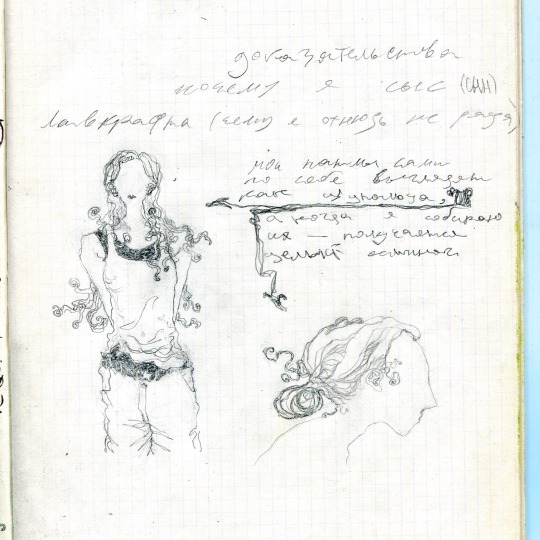 доказательства
почему я сыс (сын)
лавкрафта (чему я отнюдь не рада)
мои патлы сами
по себе выглядят
как щупольца,
а когда я собираю
их — получается
целый осьминог